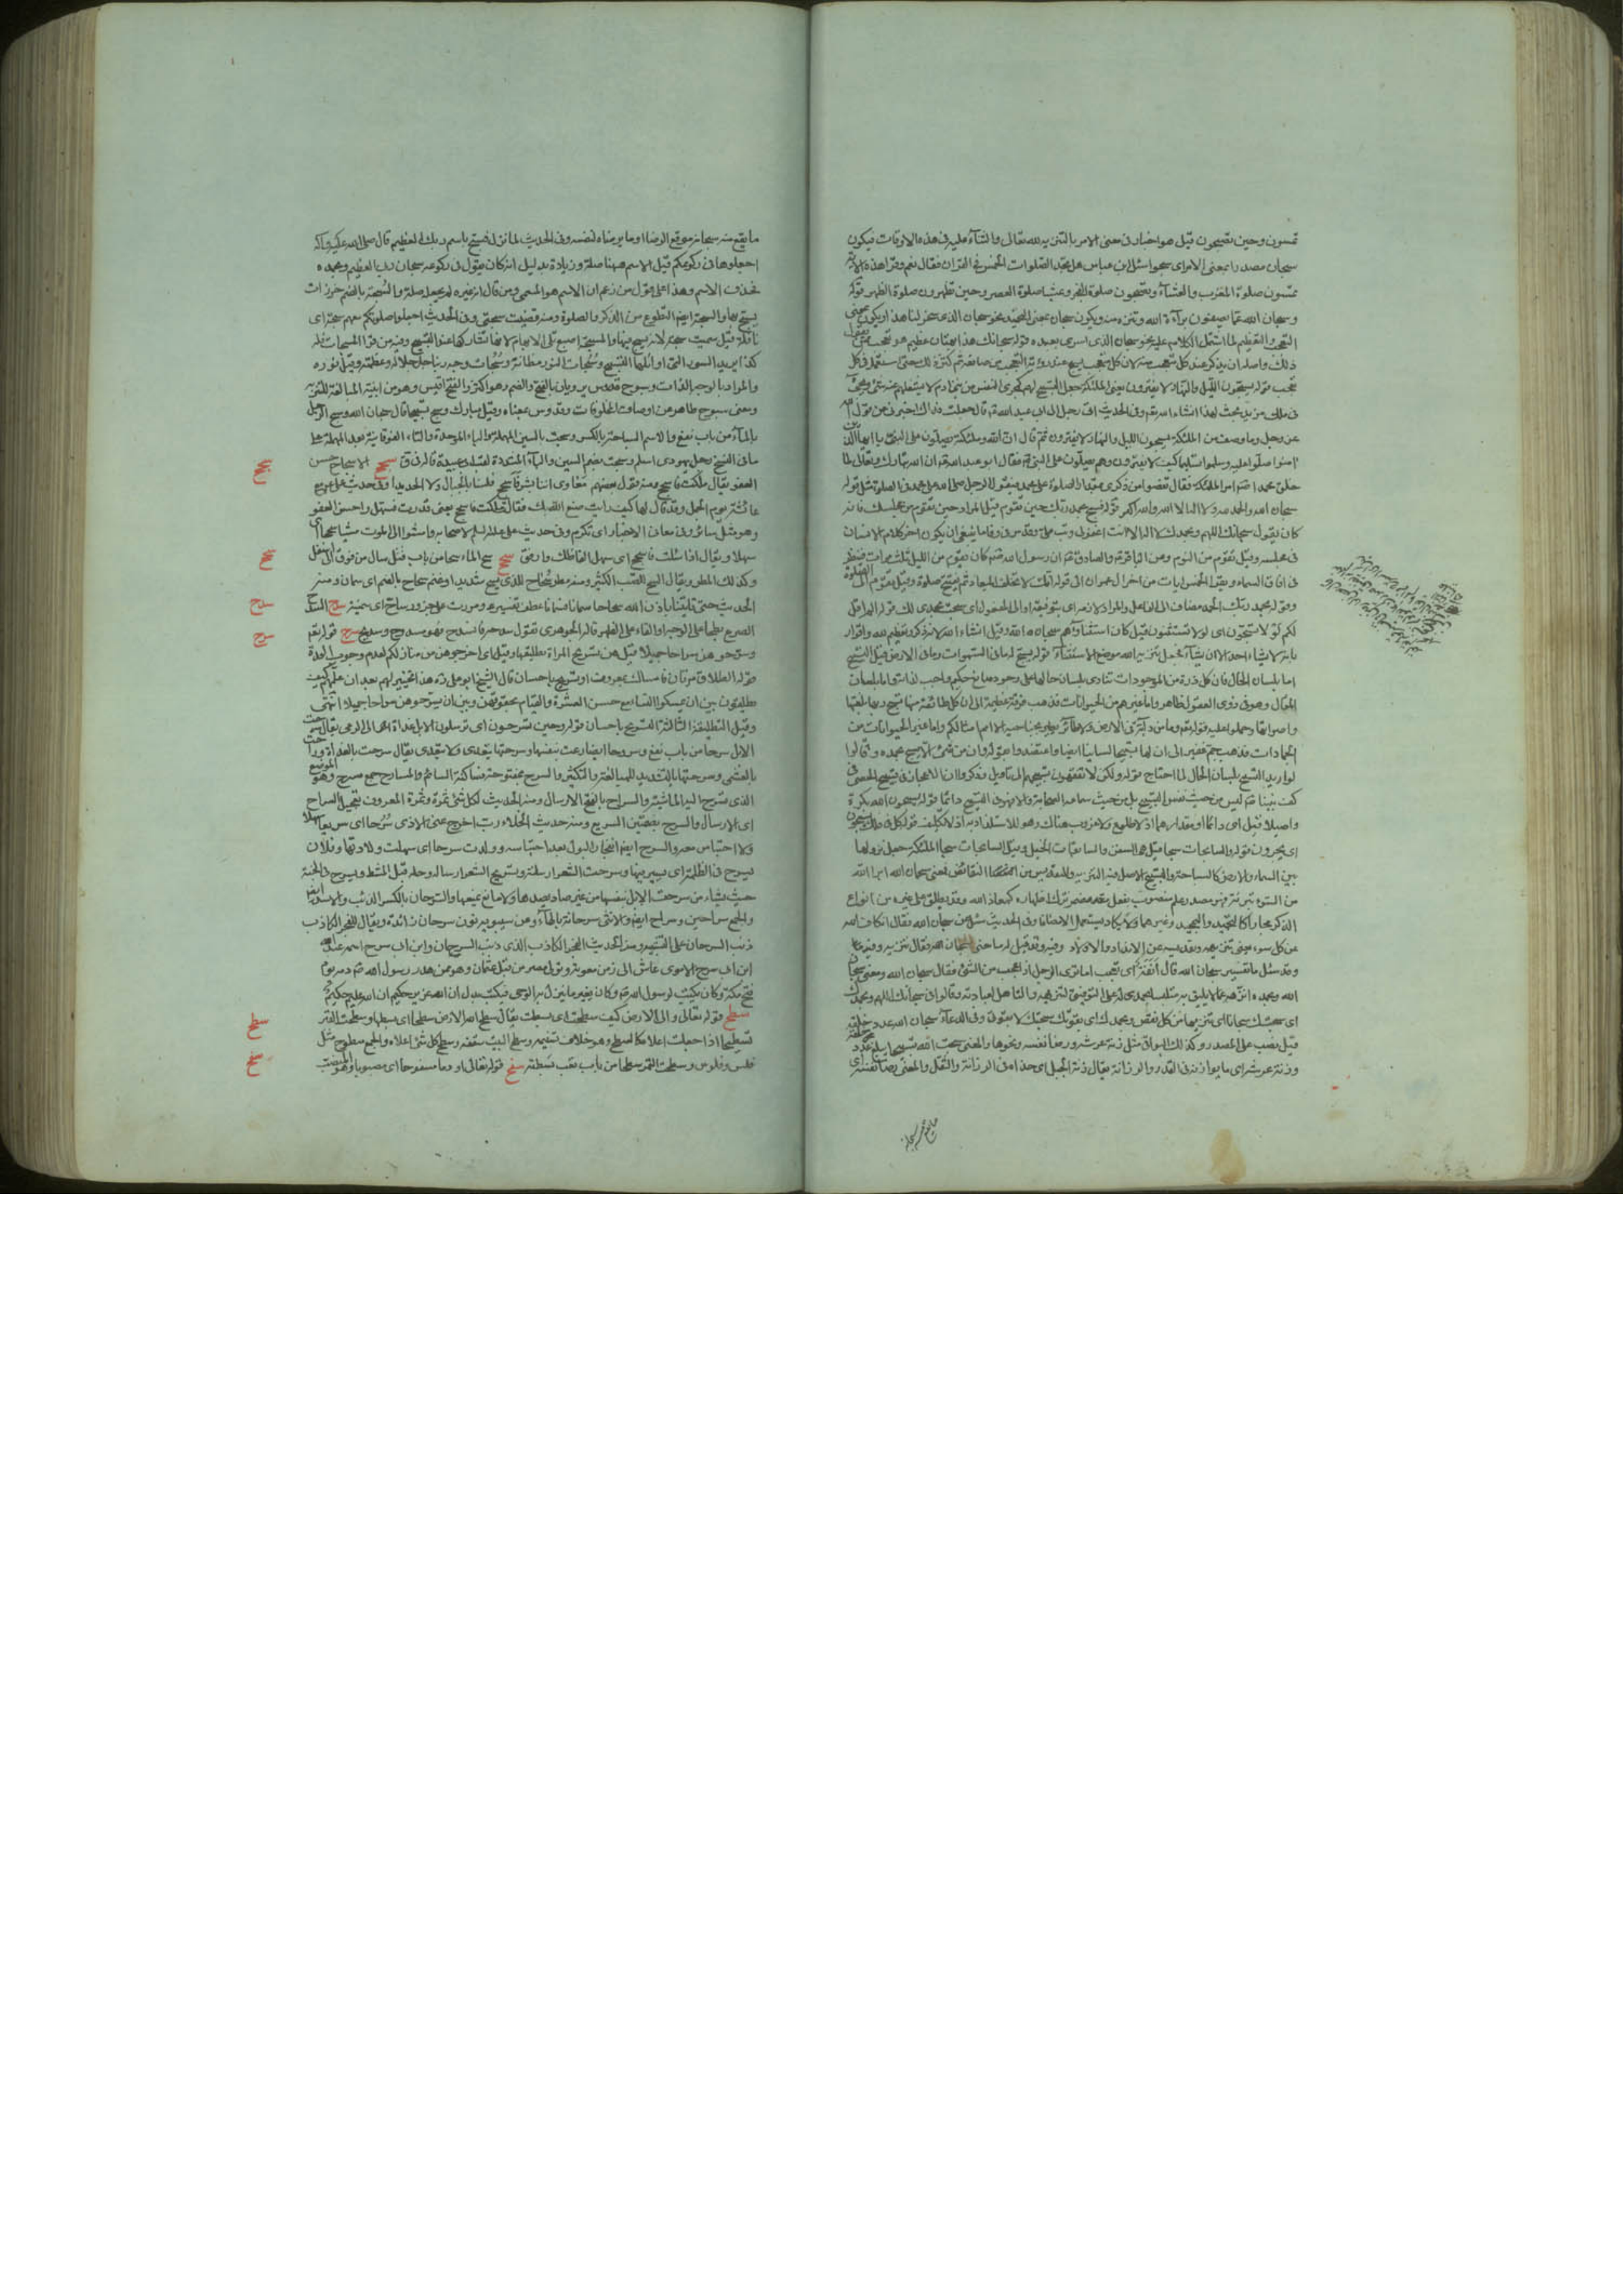 تمسون وحين تصبحون قيل هو اخبار في معنى الامر بالتنزيه لله تعالى والثناء عليه في هذه الاوقات فيكون
سبحان مصدرا بمعنى الامر اى سبحوا سئل ابن عباس هل تجد الصلوات الخمس في القران فقال نعم وقرا هذه الاية
تمسون صلوة المغرب والعشاء وتصبحون صلوة الفجر وعشيا صلوة العصر وحين تظهرون صلوة الظهر قوله
وسبحان الله عما يصفون براءة الله وتنزه منه ويكون سبحان بمعنى التعجب نحو سبحان الذى سخر لنا هذا او يكون بمعنى
التعجب والتعظيم لما اشتمل الكلام عليه نحو سبحان الذى اسرى بعبده قوله سبحانك هذا بهتان عظيم هو تعجب ممن يقول
ذلك واصله ان يذكر عند كل متعجب منه لان كل متعجب يسبح عند رؤية التعجب من صانعه ثم كثر ذلك حتى استعمل في كل
تعجب قوله يسبحون الليل والنهار لا يفترون يعنى الملئكة جعل التسبيح لهم كمجرى النفس من بنى ادم لا يشغلهم عنه شئ
في ملك مزيد بحث لهذا انشاء الله تعالى وفي الحديث اتى رجل الى ابى عبد الله قال جعلت فداك اخبرنى عن قول الله
عز وجل وما وصف من الملئكة يسبحون الليل والنهار لا يفترون ثم قال ان الله وملئكته يصلون على النبى يا ايها الذين
امنوا صلوا عليه وسلموا تسليما كيف لا يفترون وهم يصلون على النبى فقال ابو عبد الله ان الله تبارك وتعالى لما
خلق محمدا امر الملئكة فقال نقصوا من ذكرى بمقدار الصلوة على محمد فيقول الرجل صلى الله على محمد في الصلوة مثل قوله
سبحان الله والحمد لله ولا اله الا الله والله اكبر قوله فسبح بحمد ربك حين تقوم قيل المراد حين تقوم من مجلسك فانه
كان يقول سبحانك اللهم وبحمدك لا اله الا انت اغفر لى وتب على وقد روى فاما ينبغى ان يكون اخر كلام الانسان
في مجلسه وقيل تقوم من النوم وعن الباقر والصادق ان رسول الله كان يقوم من الليل ثلث مرات فينظر
في افاق السماء ويقرا الخمس ايات من اخر ال عمران الى قوله انك لا تخلف الميعاد ثم يفتتح صلوة وقيل تقوم الى الصلوة
وقوله بحمد ربك الحمد مضاف الى الفاعل والمراد لازمه اى بتوفيقه او الى المفعول اى سبحت بحمدى لك قوله الم اقل
لكم لولا تسبحون اى لولا تستثنون قيل كان استثناؤهم سبحان الله وقيل انشاء الله لانه ذكر وتعظيم لله واقرار
بانه لا يشاء احد الا ان يشاء فجعل تنزيه الله موضع الاستثناء قوله يسبح له ما في السموات وما في الارض قيل التسبيح
اما بلسان الحال فان كل ذرة من الموجودات تنادى بلسان حالها على وجود صانع حكيم واجب لذاته واما بلسان
المقال وهو في ذوى العقول ظاهر واما غيرهم من الحيوانات فذهب فرقة عظيمة الى ان كل طائفة منها تسبح ربها بلغتها
واصواتها وحملوا عليه قوله وما من دابة في الارض ولا طائر يطير بجناحيه الا امم امثالكم واما غير الحيوانات من
الجمادات فذهب جم غفير الى ان لها تسبيحا لسانيا ايضا واعتقدوا بقوله وان من شئ الا يسبح بحمده وقالوا
لو اريد التسبيح بلسان الحال لما احتاج قوله ولكن لا تفقهون تسبيحهم الى تاويل وذكروا ان الاعجاز في تسبيح الحصى في
كف نبينا ليس من حيث نفس التسبيح بل من حيث سماعه الصحابة والا فهو في التسبيح دائما قوله يسبحون الله بكرة
واصيلا قيل اى دائما او مقدارهما اذ لا طلوع ولا غروب هناك وهو للاستلذاذ به اذ لا تكليف قوله كل في فلك يسبحون
اى يجرون قوله والسابحات سبحا قيل هى السفن والسابقات الخيل وقيل السابحات سبحا الملئكة جعل نزولها
بين السماء والارض كالسباحة والتسبيح الاصل فيه التنزيه والتقديس من النقايص فمعنى سبحان الله ابرا الله
من السوء تبرئة فهو مصدر علم منصوب بفعل مقدر مضمر ترك اظهاره كمعاذ الله وقد يطلق على غيره من انواع
الذكر مجازا كالتحميد والتمجيد وغيرهما ولا يكاد يستعمل الا مضافا وفي الحديث سئل عن سبحان الله فقال انكاف الله
عن كل سوء يعنى تنزيهه وتقديسه عن الانداد والاولاد وفيه وقد قيل له ما معنى سبحان الله فقال تنزيه
وقد سئل ما تفسير سبحان الله قال أنَفَةٌ اى تعجب اما ترى الرجل اذا عجب من الشئ فقال سبحان الله ومعنى سبحان
الله وبحمده انزهه عما لا يليق به متلبسا بحمدى له على التوفيق لتنزيهه والتاهل لعبادته وقالوا في سبحانك اللهم وبحمدك
اى سبحتك سبحانا اى تنزيها من كل نقص وبحمدك اى بقوتك سبحتك لا بقوتى وفي الدعاء سبحان الله عدد خلقه
قيل نصب على المصدر وكذلك البواقى مثل زنة عرشه ورضا نفسه ونحوها والمعنى سبحت الله تسبيحا يبلغ عدد خلقه
وزنة عرشه اى ما يوازنه في القدر والرزانة يقال زنة الجبل اى حذاه في الرزانة والثقل والمعنى رضا نفسه اى
ما يقع منه سبحانه موقع الرضا او ما يرضاه لنفسه وفي الحديث لما نزل فسبح باسم ربك العظيم قال صلى الله عليه واله
اجعلوها في ركوعكم قيل الاسم هيهنا صلة وزيادة بدليل انه كان يقول في ركوعه سبحان ربى العظيم وبحمده
بحذف الاسم وهذا على قول من زعم ان الاسم هو المسمى ومن قال انه غيره لم يجعله صلة والسبحة بالضم خرزات
يسبح بها والسبحة ايضا التطوع من الذكر والصلوة ومنه قضيت سبحتى وفي الحديث اجعلوا صلوتكم معهم سبحة اى
نافلة قيل سميت سبحة لانه يسبح فيها والمسبحة اصبع تلى الابهام لانها تشار بها عند التسبيح ومنه من قرا المسبحات فله
كذا يريد السور التى اوايلها التسبيح وسبحات النور مظانه وسبحات وجه ربنا جل جلاله وعظمته وقيل نوره
والمراد بالوجه الذات وسبوح قدوس يرويان بالفتح والضم وهو اكثر والفتح اقيس وهو من ابنية المبالغة للتنزيه
ومعنى سبوح طاهر من اوصاف المخلوقات وقدوس بمعناه وقيل مبارك وسبح تسبيحا قال سبحان الله وسبح الرجل
بالماء من باب نفع والاسم السباحة بالكسر وسبحت بالسين المهملة والباء الموحدة والتاء الفوقانية بعد المهملة على
ما في النسخ رجل يهودى اسلم وسبحت بضم السين والباء المشددة لقب ابى عبيدة قاله في ق سجح الاسجاح حسن
العفو يقال ملكت فاسجح ومنه قول بعضهم معاوى اننا بشر فاسجح فلسنا بالجبال ولا الحديدا وفي حديث على مع
عايشة يوم الجمل وقد قال لها كيف رايت صنع الله بك فقالت ملكت فاسجح يعنى قدرت فسهل واحسن العفو
وهو مثل سائر وفي معانى الاخبار اى تكرم وفي حديث على عليه السلم لاصحابه وامشوا الى الموت مشيا سجحا اى
سهلا ويقال اذا سئلت فاسجح اى سهل الفاظك وارفق سحح سح الماء سحا من باب قتل سال من فوق الى اسفل
وكذلك المطر ويقال السح الصب الكثير ومنه مطر سحاح للذى يسح شديدا وغنم سحاح بالضم اى سمان ومنه
الحديث حتى تاتينا باذن الله سحاحا سمانا عطف تفسيرى ومررت على جزور ساح اى سمينة سدح السدح
الصرع بطحا على الوجه او القاء على الظهر قاله الجوهرى تقول سدحه فانسدح وهو مسدوح وسديح سرح قوله تعالى
وسرحوهن سراحا جميلا قيل هى تسريح المراة تطليقها وقيل اى اخرجوهن من منازلكم لعدم وجوب العدة
قوله الطلاق مرتان فامساك بمعروف او تسريح باحسان قال الشيخ ابو على ره هذا تخيير لهم بعد ان علمهم كيف
يطلقون بين ان يمسكوا النساء مع حسن العشرة والقيام بحقوقهن وبين ان يسرحوهن سراحا جميلا انتهى
وقيل التطليقة الثالثة التسريح باحسان قوله وحين تسرحون اى ترسلون الابل غداة الى الرعى يقال سرحت
الابل سرحا من باب نفع وسروحا ايضا رعت بنفسها وسرحتها يتعدى ولا يتعدى يقال سرحت بالغداة وراحت
بالعشى وسرحتها بالتشديد للمبالغة والتكثير والسرح بمفتوحة فساكنة السائم والمسارح جمع مسرح وهو الموضع
الذى تسرح اليه الماشية والسراح بالفتح الارسال ومنه الحديث لكل شئ ثمرة وثمرة المعروف تعجيل السراح
اى الارسال والسرح بضمتين السريع ومنه حديث الخلاء رب اخرج عنى الاذى سُرحا اى سريعا سهلا
ولا احتباس معه والسرح ايضا انفجار البول بعد احتباسه وولدت سرحا اى سهلت ولادتها وفلان
يسرح في الظلمة اى يسير فيها وسرحت الشعر ارسلته وتسريح الشعر ارساله وحله قبل المشط ويسرح في الجنة
حيث يشاء من سرحت الابل نفسها من غير صاد يصدها ولا مانع يمنعها والسرحان بالكسر الذئب والاسد ايضا
والجمع سراحين وسراح ايضا والانثى سرحانة بالهاء وعن سيبويه نون سرحان زائدة ويقال للفجر الكاذب
ذنب السرحان على التشبيه ومنه الحديث الفجر الكاذب الذى ذنب السرحان وابن ابى سرح اسمه عبد الله
ابن ابى سرح الاموى عاش الى زمن معوية وتولى مصر من قبل عثمان وهو ممن هدر رسول الله دمه يوم
فتح مكة وكان يكتب لرسول الله وكان يغير ما ينزل به الوحى فيكتب بدل ان الله عزيز حكيم ان الله عليم حكيم
سطح قوله تعالى والى الارض كيف سطحت اى بسطت يقال سطح الله الارض سطحا اى بسطها وسطحت القبر
تسطيحا اذا جعلت اعلاه كالسطح وهو خلاف تسنيمه وسطح البيت سقفه وسطح كل شئ اعلاه والجمع سطوح مثل
فلس وفلوس وسطحت التمر سطحا من باب نفع بسطته سفح قوله تعالى او دما مسفوحا اى مصبوبا وهو
سجح
سحح
سدح
سرح
سطح
سفح